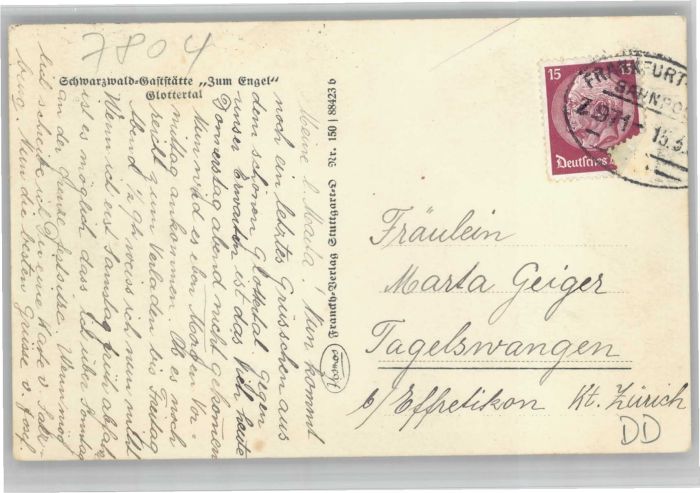 7804
Schwarzwald-Gaststätte „Zum Engel“
Glottertal
Meine l. Marta! Nun kommt
noch ein letztes Grüsschen aus
dem schönen Glottertal. Gegen
unser Erwarten ist das Vieh heute
Donnerstag abend nicht gekommen
Nun wird es eben Morgen Vor-
mittag ankommen. Ob es noch
reicht zum Verladen bis Freitag
Abend ½ 9h weiss ich nun nicht
Wenn ich erst Samstag früh ablade
ist es möglich dass ich über Sonntag
an der Grenze festsitze. Wenn mög-
lich schreibe ich Dir eine Karte v.
Nun die besten Grüsse v. Josef
Franckh-Verlag Stuttgart-O Nr. 150 | 88423 b
15 15
Deutsches
FRANKFURT-
BAHNPO
Z.0911 - 15.3
Fräulein
Marta Geiger
Tagelswangen
b/Effretikon Kt. Zürich
DD